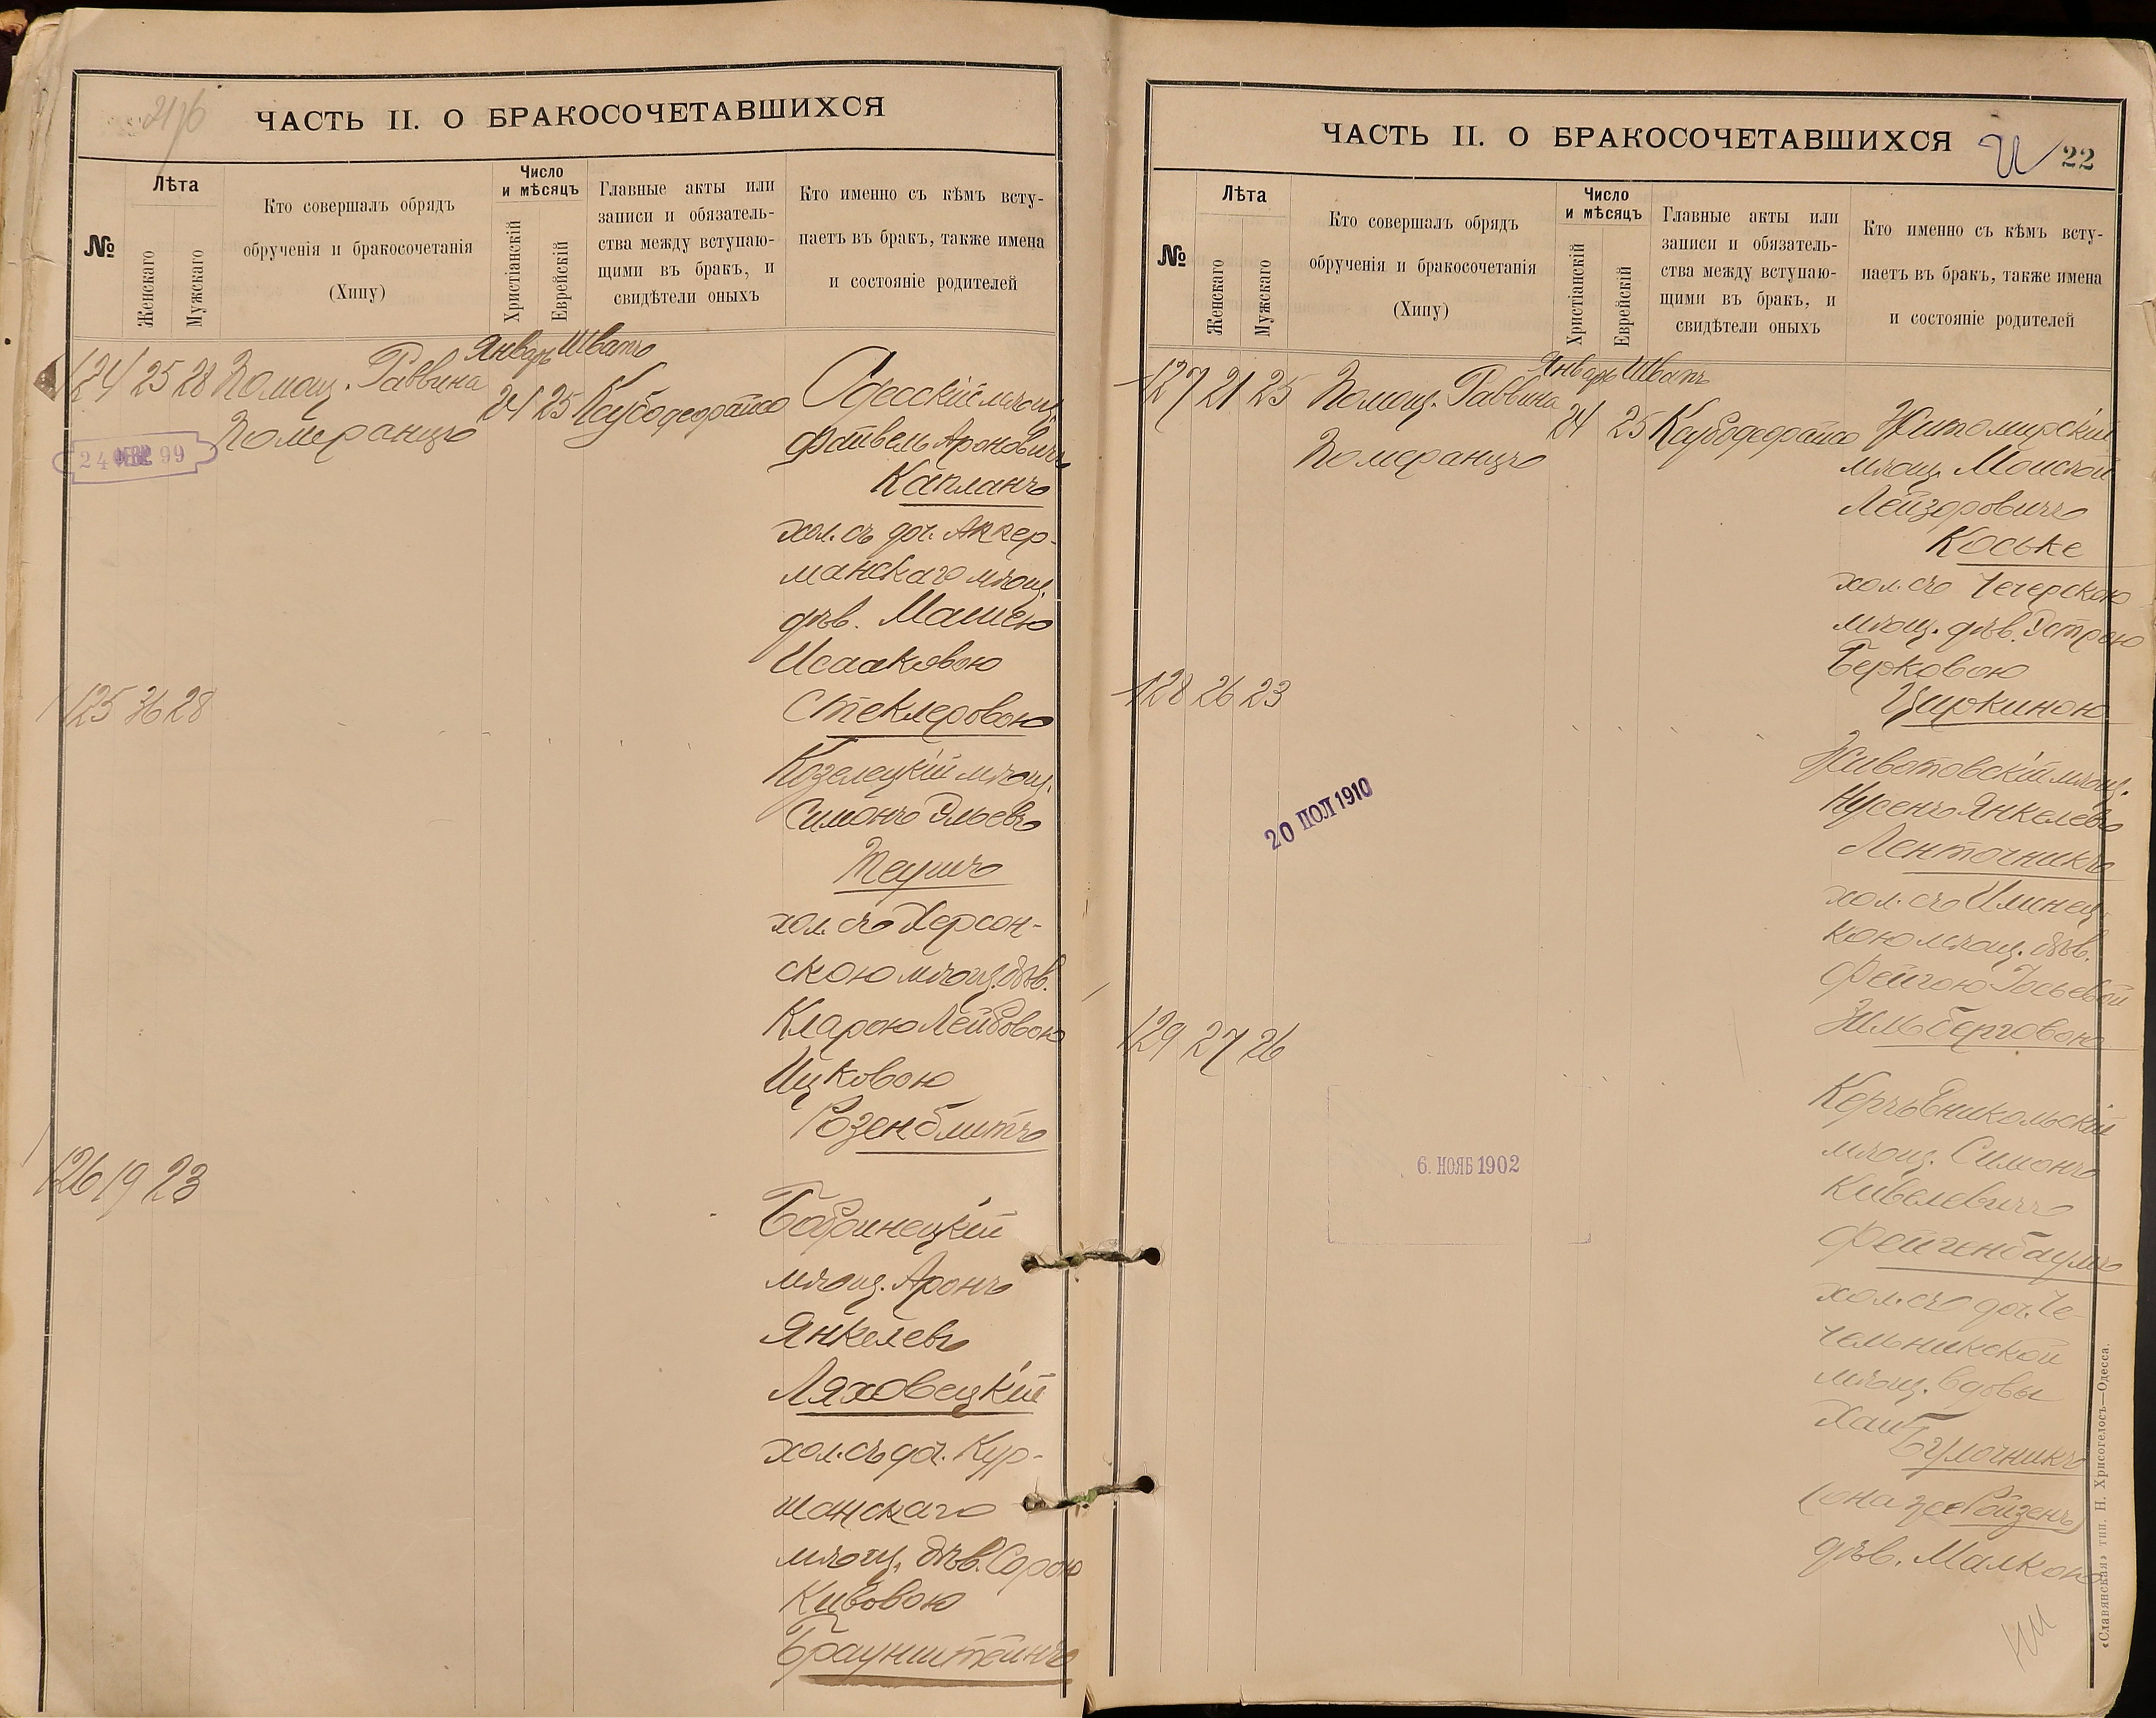 2176
ЧАСТЬ II. О БРАКОСОЧЕТАВШИХСЯ
№
Лѣта
Женскаго
Мужскаго
Кто совершалъ обрядъ
обрученія и бракосочетанія
(Хипу)
Число
и мѣсяцъ
Христіанскій
Еврейскій
Главные акты или
записи и обязатель-
ства между вступаю-
щими въ бракъ, и
свидѣтели оныхъ
Кто именно съ кѣмъ всту-
паетъ въ бракъ, также имена
и состояніе родителей
124 25 28 Помощ. Раввина
Померанцъ
Январь Шватъ
24 25
24 ФЕВР 99
Одесскій мѣщ.
Файвель Ароновичъ
Капланъ
хол. съ доч. Аккер-
манскаго мѣщ.
дѣв. Машею
Исааковою
Стеклеровою
125 36 28
Козелецкій мѣщ.
Симонъ Эльевъ
Теушъ
хол. съ Херсон-
скою мѣщ. дѣв.
Кларою Лейбовою
Ицковою
Розенблитъ
126 19 23
Бобринецкій
мѣщ. Аронъ
Янкелевъ
Ляховецкій
хол. съ доч. Кур-
шанскаго
мѣщ. дѣв. Сорою
Кивовою
Браунштейнъ
ЧАСТЬ II. О БРАКОСОЧЕТАВШИХСЯ
22
№
Лѣта
Женскаго
Мужскаго
Кто совершалъ обрядъ
обрученія и бракосочетанія
(Хипу)
Число
и мѣсяцъ
Христіанскій
Еврейскій
Главные акты или
записи и обязатель-
ства между вступаю-
щими въ бракъ, и
свидѣтели оныхъ
Кто именно съ кѣмъ всту-
паетъ въ бракъ, также имена
и состояніе родителей
127 21 25 Помощ. Раввина
Померанцъ
Январь Шватъ
24 25
Житомирскій
мѣщ. Моисей
Лейзоровичъ
Коське
хол. съ Чечерскою
мѣщ. дѣв. Эстрою
Берковою
Циркиною
128 26 23
20 ПОЛ 1910
Животовскій мѣщ.
Нусенъ Янкелевъ
Ленточникъ
хол. съ Илинец-
кою мѣщ. дѣв.
Фейгою Іосьевой
Зильберговою
129 27 26
6. НОЯБ 1902
Керчь Еникольскій
мѣщ. Симонъ
Кивелевичъ
Фейгенбаумъ
хол. съ доч. Че-
чельникской
мѣщ. вдовы
Хаи
Булочникъ
(она же Ройзенъ)
дѣв. Малкою
«Славянская» тип. Н. Хрисогелосъ—Одесса.